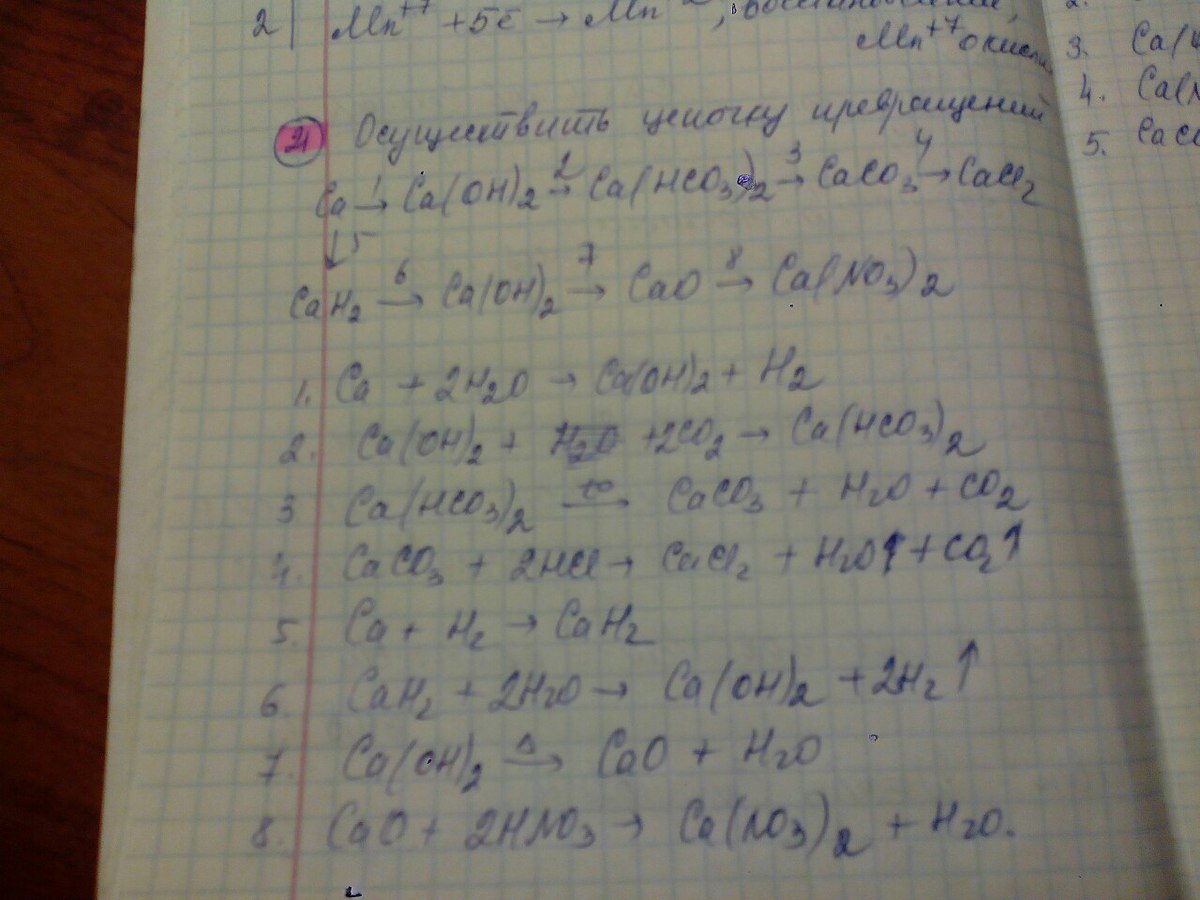 2 Mn⁺⁷ + 5ē → Mn
Mn⁺⁷
21 Осуществить цепочку превращений
Ca →¹ Ca(OH)₂ →² Ca(HCO₃)₂ →³ CaCO₃ →⁴ CaCl₂
↓5
CaH₂ →⁶ Ca(OH)₂ →⁷ CaO →⁸ Ca(NO₃)₂
1. Ca + 2H₂O → Ca(OH)₂ + H₂
2. Ca(OH)₂ + +2CO₂ → Ca(HCO₃)₂
3 Ca(HCO₃)₂ →t° CaCO₃ + H₂O + CO₂
4. CaCO₃ + 2HCl → CaCl₂ + H₂O↑ + CO₂↑
5. Ca + H₂ → CaH₂
6. CaH₂ + 2H₂O → Ca(OH)₂ + 2H₂↑
7. Ca(OH)₂ →Δ CaO + H₂O
8. CaO + 2HNO₃ → Ca(NO₃)₂ + H₂O.
2.
3. Ca(
4. Ca(N
5. CaC